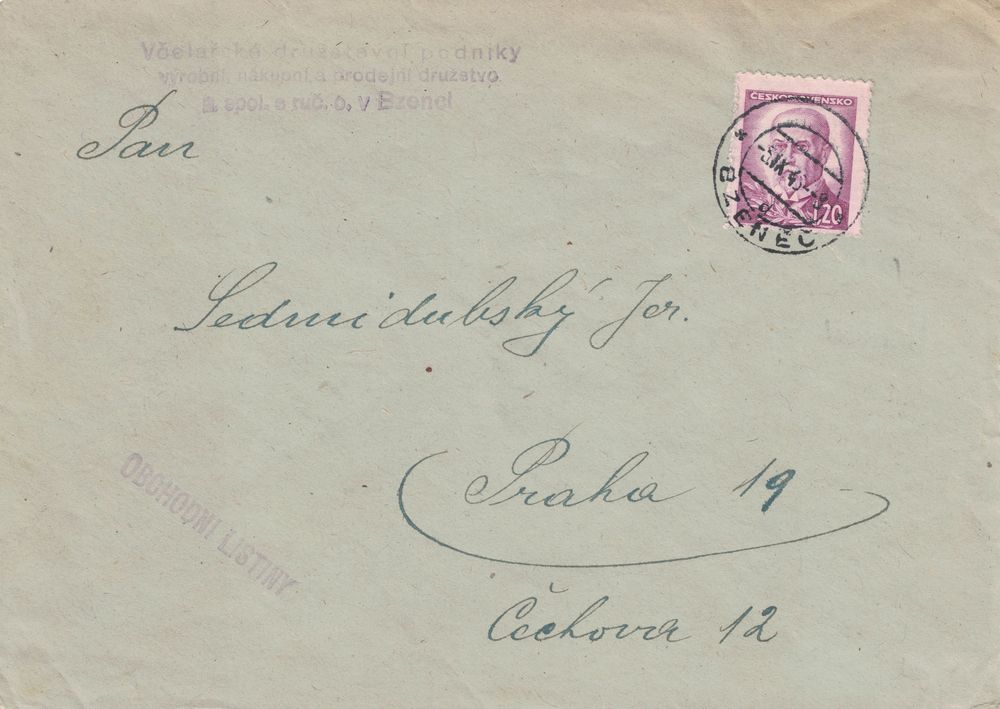 Včelařské družstevní podniky
výrobní, nákupní a prodejní družstvo
s spol. s ruč. o. v Bzenci
Pan
ČESKOSLOVENSKO
1.20
BZENEC
Sedmidubský Jer.
OBCHODNÍ LISTINY
Praha 19
Čechova 12